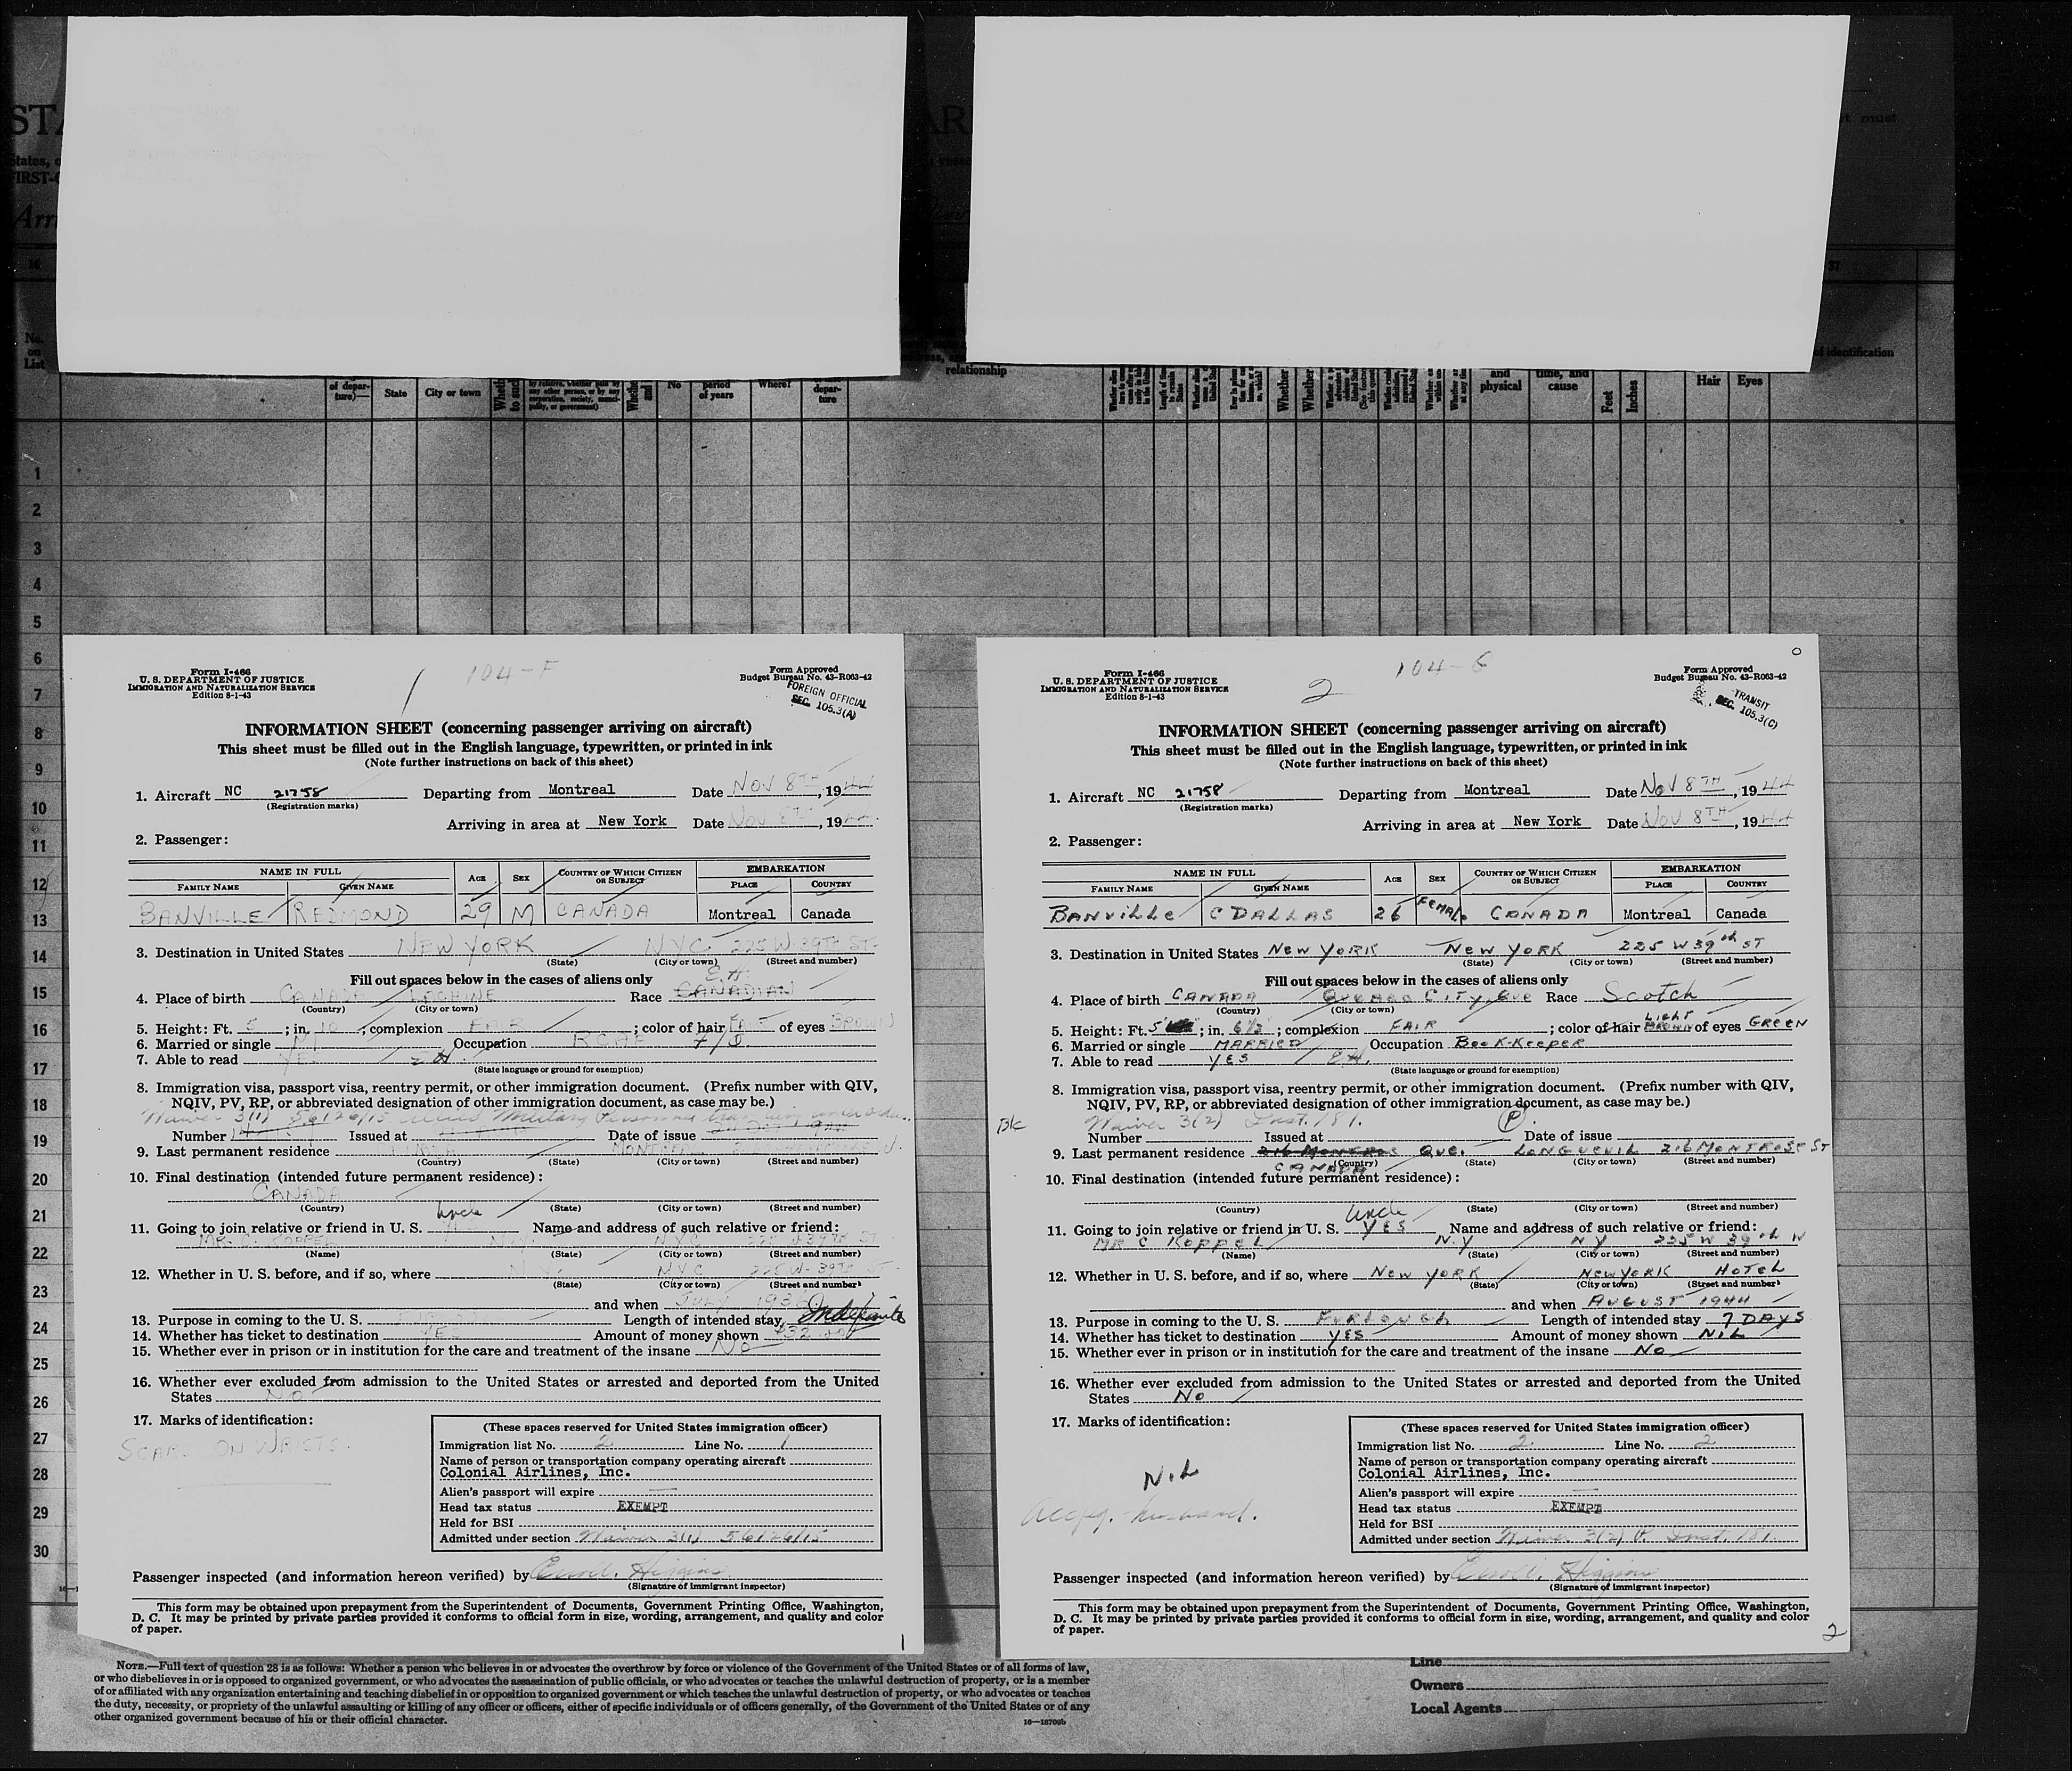 STA
tates, o
FIRST-C
Arri
16
No.
on
List
of depar-
ture)—
State
City or town
by relative, whether paid by
any other person, or by any
corporation, society, munici-
pality, or government)
No
period
of years
Where?
depar-
ture
relationship
and
physical
time, and
cause
Feet
Inches
Hair
Eyes
of identification
37
t must
1
2
3
4
5
6
7
8
9
10
11
12
13
14
15
16
17
18
19
20
21
22
23
24
25
26
27
28
29
30
Form I-466
U. S. DEPARTMENT OF JUSTICE
IMMIGRATION AND NATURALIZATION SERVICE
Edition 8-1-43
1 104-F
Form Approved
Budget Bureau No. 43-R063-42
FOREIGN OFFICIAL
SEC. 105.3(A)
INFORMATION SHEET (concerning passenger arriving on aircraft)
This sheet must be filled out in the English language, typewritten, or printed in ink
(Note further instructions on back of this sheet)
1. Aircraft NC 21758 Departing from Montreal Date NOV 8TH, 1944
(Registration marks)
Arriving in area at New York Date NOV 8TH, 1944
2. Passenger:
NAME IN FULL AGE SEX COUNTRY OF WHICH CITIZEN OR SUBJECT EMBARKATION
FAMILY NAME GIVEN NAME PLACE COUNTRY
BANVILLE REDMOND 29 M CANADA Montreal Canada
3. Destination in United States NEW YORK NYC. 225 W. 39TH ST.
(State) (City or town) (Street and number)
Fill out spaces below in the cases of aliens only E.H.
4. Place of birth CANADA LACHINE Race CANADIAN
(Country) (City or town)
5. Height: Ft. 5; in. 10; complexion FAIR; color of hair FAIR of eyes BROWN
6. Married or single M Occupation RCAF
7. Able to read YES EH
(State language or ground for exemption)
8. Immigration visa, passport visa, reentry permit, or other immigration document. (Prefix number with QIV,
NQIV, PV, RP, or abbreviated designation of other immigration document, as case may be.)
Waiver 3(1) 56126/15 Allied Military Personnel
Number Issued at Date of issue
9. Last permanent residence MONTREAL
(Country) (State) (City or town) (Street and number)
10. Final destination (intended future permanent residence):
CANADA
(Country) (State) (City or town) (Street and number)
11. Going to join relative or friend in U. S. Uncle Name and address of such relative or friend:
MR. C. KOPPEL N.Y. NYC 225 W 39TH ST
(Name) (State) (City or town) (Street and number)
12. Whether in U. S. before, and if so, where N.Y. NYC 225 W. 39TH ST.
(State) (City or town) (Street and number)
and when JULY 193
13. Purpose in coming to the U. S. Length of intended stay Indefinite
14. Whether has ticket to destination YES Amount of money shown $32.00
15. Whether ever in prison or in institution for the care and treatment of the insane No
16. Whether ever excluded from admission to the United States or arrested and deported from the United
States NO
17. Marks of identification:
SCARS ON WRISTS.
(These spaces reserved for United States immigration officer)
Immigration list No. 2 Line No. 1
Name of person or transportation company operating aircraft
Colonial Airlines, Inc.
Alien's passport will expire —
Head tax status EXEMPT
Held for BSI
Admitted under section Waiver 3(1) 56126/15
Passenger inspected (and information hereon verified) by Errol. Higgins
(Signature of immigrant inspector)
This form may be obtained upon prepayment from the Superintendent of Documents, Government Printing Office, Washington,
D. C. It may be printed by private parties provided it conforms to official form in size, wording, arrangement, and quality and color
of paper.
1
Form I-466
U. S. DEPARTMENT OF JUSTICE
IMMIGRATION AND NATURALIZATION SERVICE
Edition 8-1-43
2 104-G
Form Approved
Budget Bureau No. 43-R063-42
TRANSIT
SEC. 105.3(C)
INFORMATION SHEET (concerning passenger arriving on aircraft)
This sheet must be filled out in the English language, typewritten, or printed in ink
(Note further instructions on back of this sheet)
1. Aircraft NC 21758 Departing from Montreal Date NOV 8TH, 1944
(Registration marks)
Arriving in area at New York Date NOV 8TH, 1944
2. Passenger:
NAME IN FULL AGE SEX COUNTRY OF WHICH CITIZEN OR SUBJECT EMBARKATION
FAMILY NAME GIVEN NAME PLACE COUNTRY
BANVILLE C DALLAS 26 FEMALE CANADA Montreal Canada
3. Destination in United States NEW YORK NEW YORK 225 W 39th ST
(State) (City or town) (Street and number)
Fill out spaces below in the cases of aliens only
4. Place of birth CANADA QUEBEC CITY, QUE Race Scotch
(Country) (City or town)
5. Height: Ft. 5; in. 6½; complexion FAIR; color of hair LIGHT BROWN of eyes GREEN
6. Married or single MARRIED Occupation BOOK-KEEPER
7. Able to read YES EH.
(State language or ground for exemption)
8. Immigration visa, passport visa, reentry permit, or other immigration document. (Prefix number with QIV,
NQIV, PV, RP, or abbreviated designation of other immigration document, as case may be.)
Waiver 3(2) Inst. 181. P
Number Issued at Date of issue
9. Last permanent residence QUE. LONGUEUIL 216 MONTROSE ST
CANADA (Country) (State) (City or town) (Street and number)
10. Final destination (intended future permanent residence):
(Country) (State) (City or town) (Street and number)
11. Going to join relative or friend in U. S. Uncle YES Name and address of such relative or friend:
MR C KOPPEL N.Y NY 225 W 39th W
(Name) (State) (City or town) (Street and number)
12. Whether in U. S. before, and if so, where NEW YORK NEW YORK HOTEL
(State) (City or town) (Street and number)
and when AUGUST 1944
13. Purpose in coming to the U. S. FURLOUGH Length of intended stay 7 DAYS
14. Whether has ticket to destination YES Amount of money shown NIL
15. Whether ever in prison or in institution for the care and treatment of the insane No
16. Whether ever excluded from admission to the United States or arrested and deported from the United
States No
17. Marks of identification:
NIL
Accpg. husband.
(These spaces reserved for United States immigration officer)
Immigration list No. 2 Line No. 2
Name of person or transportation company operating aircraft
Colonial Airlines, Inc.
Alien's passport will expire —
Head tax status EXEMPT
Held for BSI
Admitted under section Waiver 3(2) P. Inst. 181.
Passenger inspected (and information hereon verified) by Errol. Higgins
(Signature of immigrant inspector)
This form may be obtained upon prepayment from the Superintendent of Documents, Government Printing Office, Washington,
D. C. It may be printed by private parties provided it conforms to official form in size, wording, arrangement, and quality and color
of paper.
2
NOTE.—Full text of question 28 is as follows: Whether a person who believes in or advocates the overthrow by force or violence of the Government of the United States or of all forms of law,
or who disbelieves in or is opposed to organized government, or who advocates the assassination of public officials, or who advocates or teaches the unlawful destruction of property, or is a member
of or affiliated with any organization entertaining and teaching disbelief in or opposition to organized government or which teaches the unlawful destruction of property, or who advocates or teaches
the duty, necessity, or propriety of the unlawful assaulting or killing of any officer or officers, either of specific individuals or of officers generally, of the Government of the United States or of any
other organized government because of his or their official character.
16—18709b
Line
Owners
Local Agents